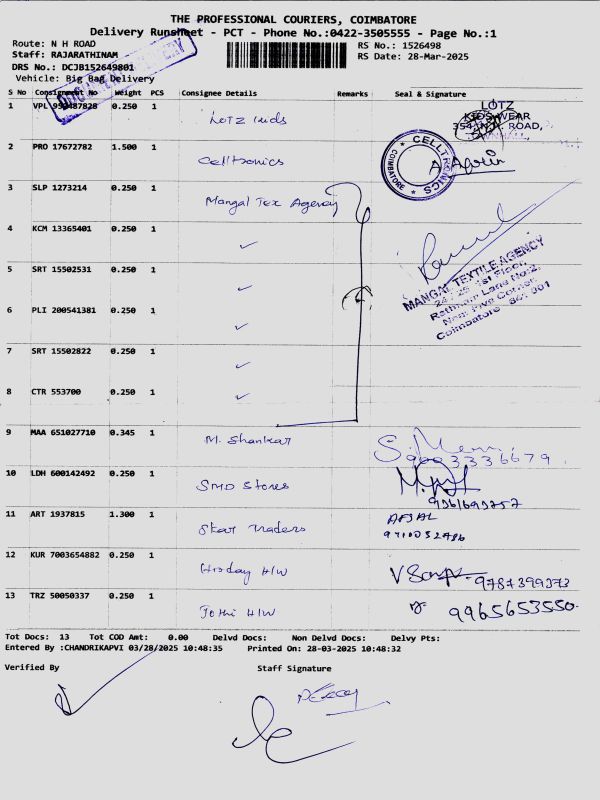 THE PROFESSIONAL COURIERS, COIMBATORE
Delivery Runsheet - PCT - Phone No.:0422-3505555 - Page No.:1
Route: N H ROAD
RS No.: 1526498
Staff: RAJARATHINAM
RS Date: 28-Mar-2025
DRS No.: DCJB152649801
Vehicle: Big Bag Delivery
S No Consignment No Weight PCS Consignee Details Remarks Seal & Signature
1 VPL 0.250 1 Lotz kids
LOTZ
KIDS WEAR
ROAD,
2 PRO 17672782 1.500 1 Celltronics
CELLTRONICS
COIMBATORE
3 SLP 1273214 0.250 1 Mangal Tex Agency
4 KCM 13365401 0.250 1 ✓
5 SRT 15502531 0.250 1 ✓
MANGAL TEXTILE AGENCY
1st Floor,
Coimbatore - 641 001
6 PLI 200541381 0.250 1 ✓
7 SRT 15502822 0.250 1 ✓
8 CTR 553700 0.250 1 ✓
9 MAA 651027710 0.345 1 M. Shankar
10 LDH 600142492 0.250 1 SMD Stores
11 ART 1937815 1.300 1 Star Traders
AFJAL
12 KUR 7003654882 0.250 1 H/W
13 TRZ 50050337 0.250 1 Jothi H/W
9965653550
Tot Docs: 13 Tot COD Amt: 0.00 Delvd Docs: Non Delvd Docs: Delvy Pts:
Entered By :CHANDRIKAPVI 03/28/2025 10:48:35 Printed On: 28-03-2025 10:48:32
Verified By Staff Signature